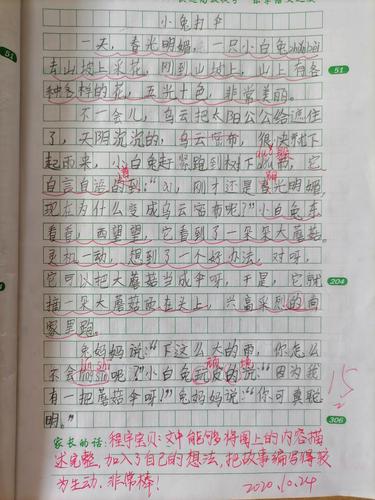 小兔打伞
一天，春光明媚，一只小白兔zhèng zài
青山坡上采花，刚到山坡上，山上有各
51
种各样的花，五光十色，非常美丽。
不一会儿，乌云把太阳公公给遮住
了，天阴沉沉的，乌云密布，很快就下
起雨来，小白兔赶紧跑到树下duǒ雨，它
自言自语的到：“ai，刚才还是春光明媚，
现在为什么变成乌云密布呢？”小白兔东
看看，西望望，它看到了一朵朵大蘑菇，
灵机一动，想到了一个好办法，对呀，
它可以把大蘑菇当成伞呀，于是，它就
204
摘一朵大蘑菇顶在头上，兴高采烈的向
家里跑。
兔妈妈说：“下这么大的雨，你怎么
不会lín shī呢？”小白兔顽皮的说：“因为我
有一把蘑菇伞呀！”兔妈妈说：“你可真聪
明。”
306
15
家长的话：程宇宝贝：文中能够将图上的内容描
述完整，加入了自己的想法，把故事编写得较
为生动，非常棒！
2020.10.24